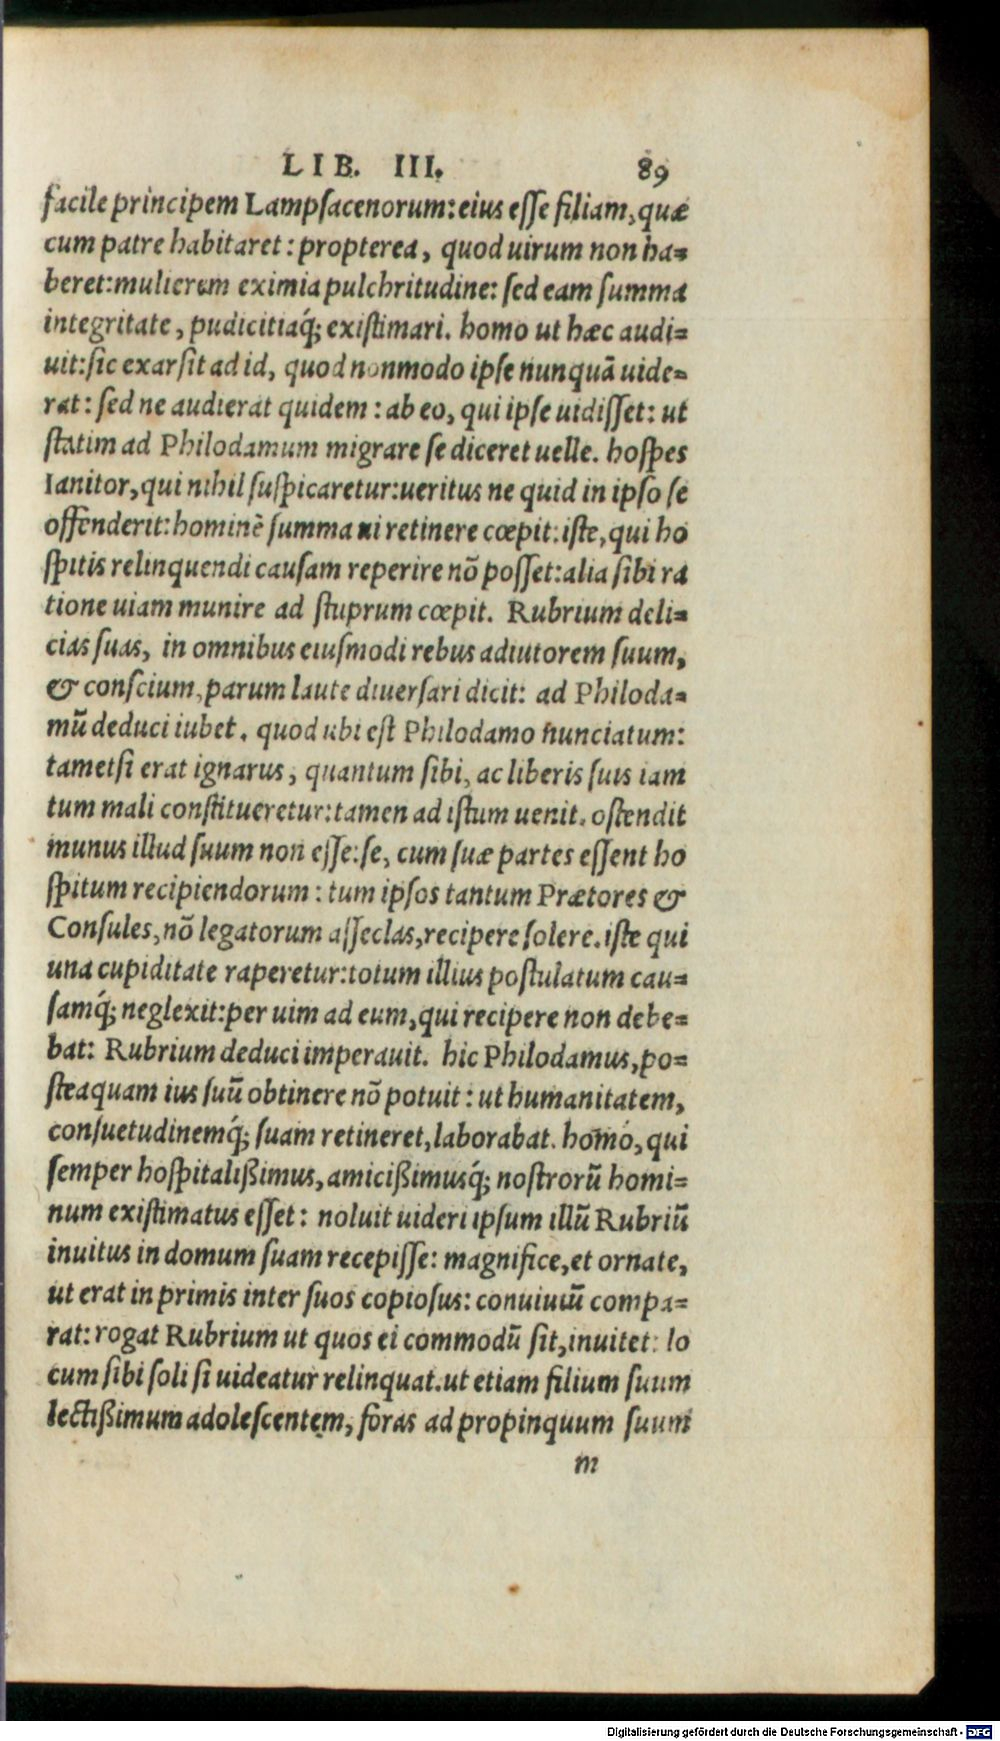 LIB. III. 89
facile principem Lampſacenorum: eius eſſe filiam, quæ
cum patre habitaret: propterea, quod uirum non ha=
beret: mulierem eximia pulchritudine: ſed eam ſumma
integritate, pudicitiaq́; exiſtimari. homo ut hæc audi=
uit: ſic exarſit ad id, quod nonmodo ipſe nunquā uide=
rat: ſed ne audierat quidem: ab eo, qui ipſe uidiſſet: ut
ſtatim ad Philodamum migrare ſe diceret uelle. hoſpes
Ianitor, qui nihil ſuſpicaretur: ueritus ne quid in ipſo ſe
offenderit: hominē ſumma ui retinere cœpit: iſte, qui ho
ſpitis relinquendi cauſam reperire nō poſſet: alia ſibi ra
tione uiam munire ad ſtuprum cœpit. Rubrium deli=
cias ſuas, in omnibus eiuſmodi rebus adiutorem ſuum,
& conſcium, parum laute diuerſari dicit: ad Philoda=
mū deduci iubet. quod ubi eſt Philodamo nunciatum:
tametſi erat ignarus, quantum ſibi, ac liberis ſuis iam
tum mali conſtitueretur: tamen ad iſtum uenit. oſtendit
munus illud ſuum non eſſe: ſe, cum ſuæ partes eſſent ho
ſpitum recipiendorum: tum ipſos tantum Prætores &
Conſules, nō legatorum aſſeclas, recipere ſolere. iſte qui
una cupiditate raperetur: totum illius poſtulatum cau=
ſamq́; neglexit: per uim ad eum, qui recipere non debe=
bat: Rubrium deduci imperauit. hic Philodamus, po=
ſteaquam ius ſuū obtinere nō potuit: ut humanitatem,
conſuetudinemq́; ſuam retineret, laborabat. homo, qui
ſemper hoſpitalißimus, amicißimusq́; noſtrorū homi=
num exiſtimatus eſſet: noluit uideri ipſum illū Rubriū
inuitus in domum ſuam recepiſſe: magnifice, et ornate,
ut erat in primis inter ſuos copioſus: conuiuiū compa=
rat: rogat Rubrium ut quos ei commodū ſit, inuitet: lo
cum ſibi ſoli ſi uideatur relinquat. ut etiam filium ſuum
lectißimum adoleſcentem, foras ad propinquum ſuum
m
Digitalisierung gefördert durch die Deutsche Forschungsgemeinschaft - DFG